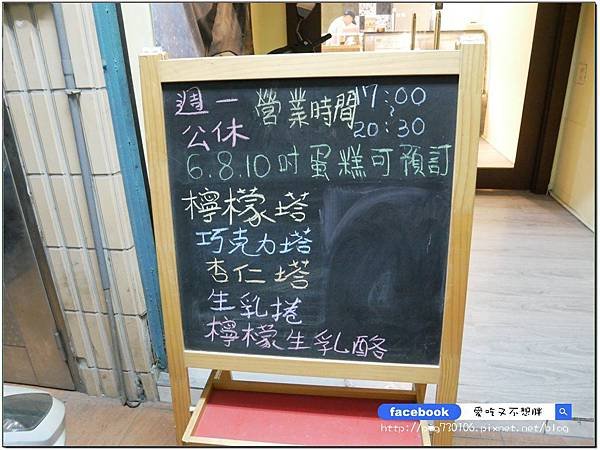 週一 營業時間 17:00
公休 ~ 20:30
6.8.10吋蛋糕可預訂
檸檬塔
巧克力塔
杏仁塔
生乳捲
檸檬生乳酪
facebook 愛吃又不想胖
http://peg730106.pixnet.net/blog